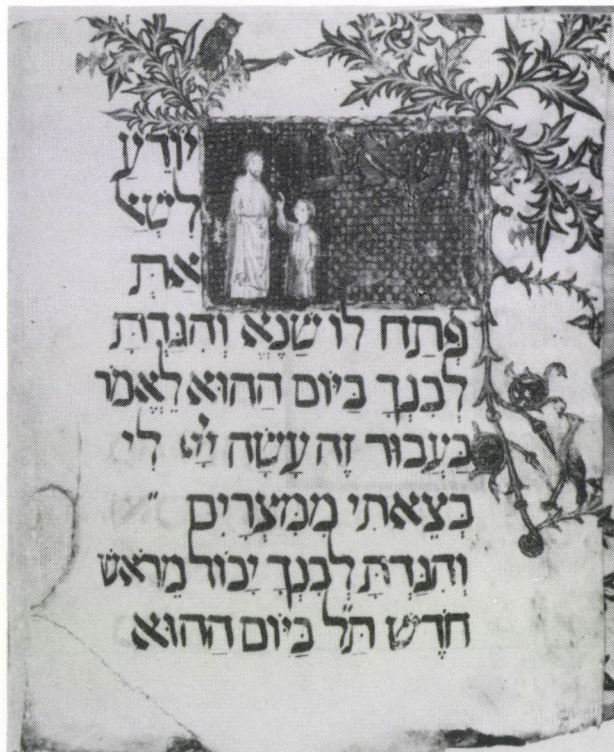 ושאינו
יודע
לישאל
את
פְּתַח לוֹ שֶׁנֶּאֱ וְהִגַּדְתָּ
לְבִנְךָ בַּיּוֹם הַהוּא לֵאמֹר
בַּעֲבוּר זֶה עָשָׂה יְיָ לִי
בְּצֵאתִי מִמִּצְרָיִם
וְהִגַּדְתָּ לְבִנְךָ יָכוֹל מֵרֹאשׁ
חֹדֶשׁ תַּל בַּיּוֹם הַהוּא